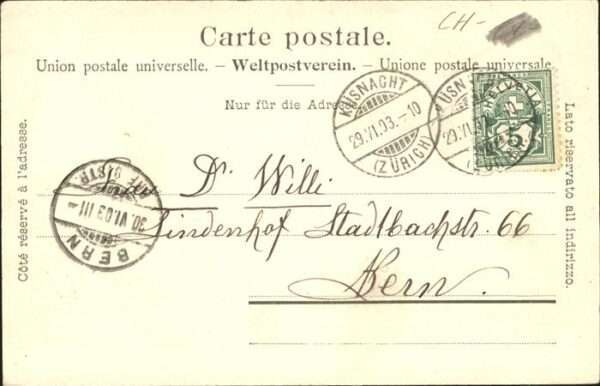 CH-
Carte postale.
Union postale universelle. – Weltpostverein. – Unione postale universale.
Nur für die Adresse
KÜSNACHT
29.VI.03.–10
(ZÜRICH)
HELVETIA
5
Côté réservé à l'adresse.
Lato riservato all indirizzo.
Dr. Willi
Lindenhof Stadtbachstr. 66
Bern.
BERN
30.VI.03 III